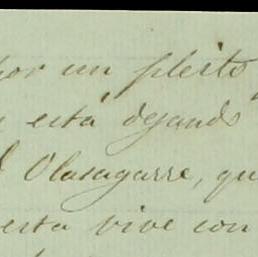 por un pleito
está dejando
Olasagarre, qu
esta vive con